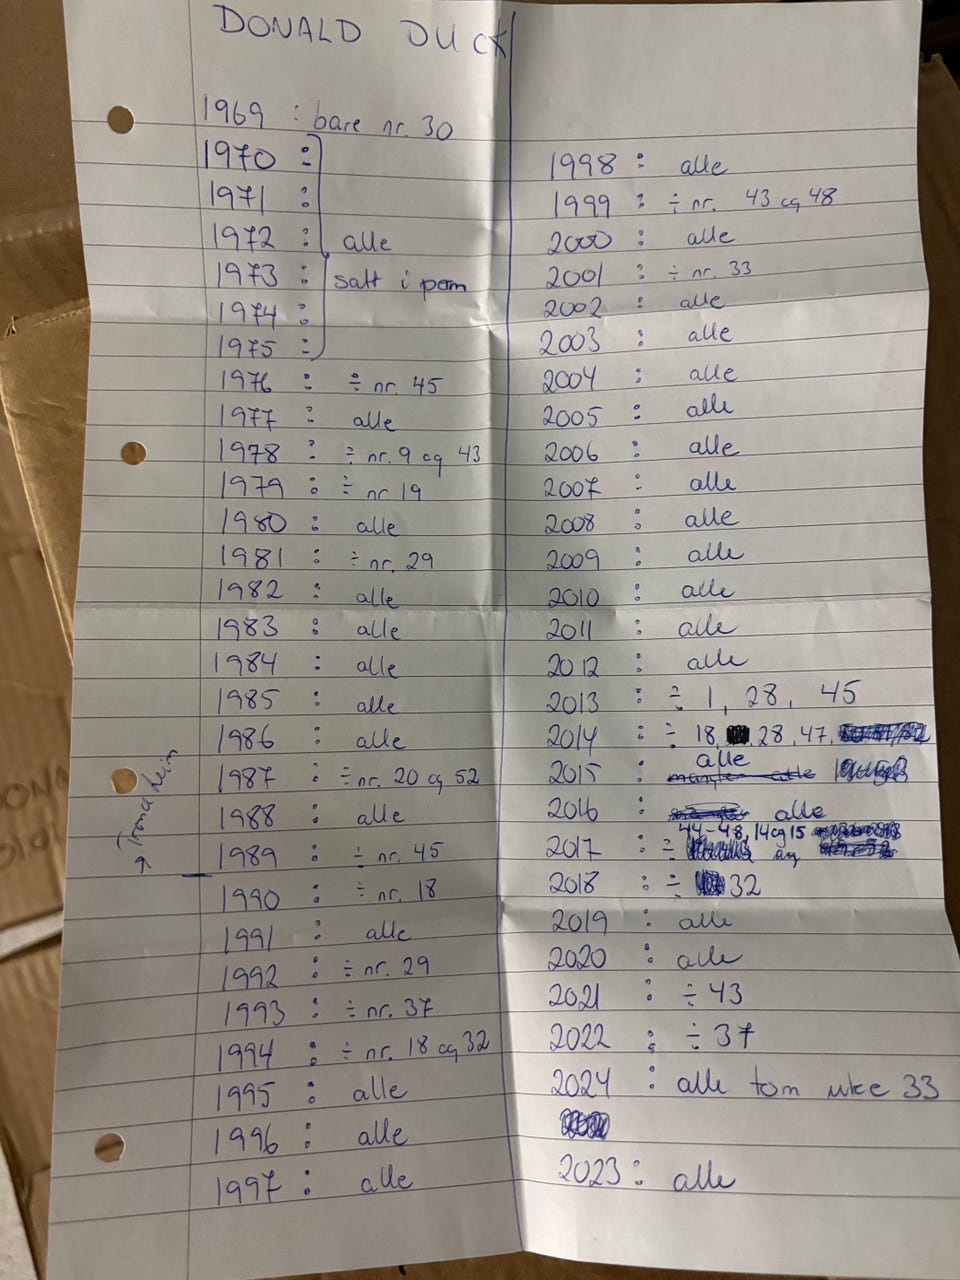 DONALD DUCK
1969 : bare nr. 30
1970 :
1971 :
1972 : alle
1973 : satt i perm
1974 :
1975 :
1976 : ÷ nr. 45
1977 : alle
1978 : ÷ nr. 9 og 43
1979 : ÷ nr 19
1980 : alle
1981 : ÷ nr. 29
1982 : alle
1983 : alle
1984 : alle
1985 : alle
1986 : alle
1987 : ÷ nr. 20 og 52
1988 : alle
1989 : ÷ nr. 45
→ Trondheim
1990 : ÷ nr. 18
1991 : alle
1992 : ÷ nr. 29
1993 : ÷ nr. 37
1994 : ÷ nr. 18 og 32
1995 : alle
1996 : alle
1997 : alle
1998 : alle
1999 : ÷ nr. 43 og 48
2000 : alle
2001 : ÷ nr. 33
2002 : alle
2003 : alle
2004 : alle
2005 : alle
2006 : alle
2007 : alle
2008 : alle
2009 : alle
2010 : alle
2011 : alle
2012 : alle
2013 : ÷ 1, 28, 45
2014 : ÷ 18, 28, 47,
2015 : alle
2016 : alle
44-48, 14 og 15
2017 : ÷
2018 : ÷ 32
2019 : alle
2020 : alle
2021 : ÷ 43
2022 : ÷ 37
2024 : alle tom uke 33
2023 : alle